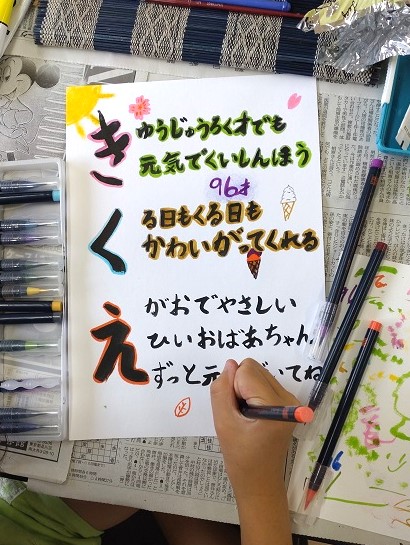 きゅうじゅうろく才でも
元気でくいしんぼう
96才
くる日もくる日も
かわいがってくれる
えがおでやさしい
ひいおばあちゃん
ずっと元いてね